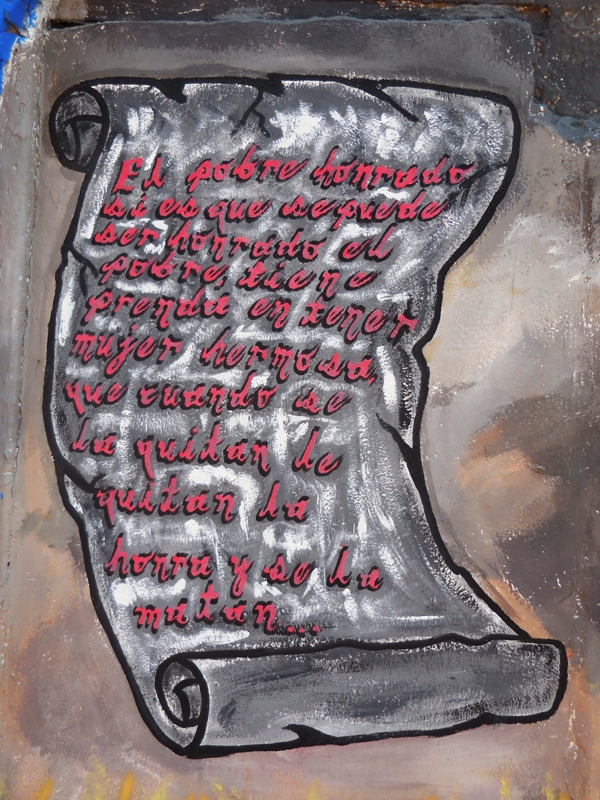 El pobre honrado
si es que se puede
ser honrado el
pobre, tiene
prenda en tener
mujer hermosa,
que cuando se
la quitan le
quitan la
honra y se la
matan...